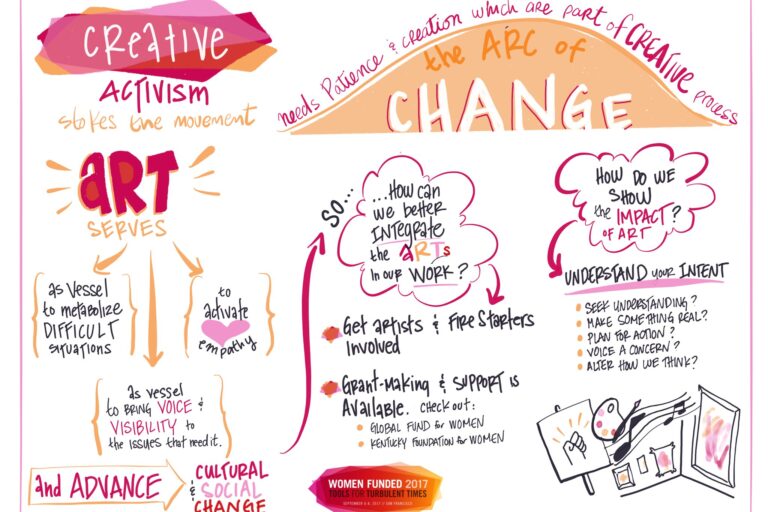 CREATIVE
ACTIVISM
stokes the movement
needs Patience & creation which are part of CREATIVE process
the ARC of
CHANGE
ART
SERVES
as vessel
to metabolize
DIFFICULT
situations
to
activate
empathy
as vessel
to BRING VOICE &
VISIBILITY to
the issues that need it.
and ADVANCE
CULTURAL
& SOCIAL
CHANGE
SO...
...HOW can
we better
INTEGRATE
the ARTs
in our WORK?
Get artists & FIRE STARTERS
Involved
Grant-Making & SUPPORT is
Available. CHECK OUT:
GLOBAL FUND for WOMEN
KENTUCKY FOUNDATION for WOMEN
HOW DO WE
SHOW
the IMPACT?
OF ART
UNDERSTAND your INTENT
SEEK UNDERSTANDING?
MAKE SOMETHING REAL?
PLAN FOR ACTION?
VOICE A CONCERN?
ALTER HOW WE THINK?
WOMEN FUNDED 2017
TOOLS FOR TURBULENT TIMES